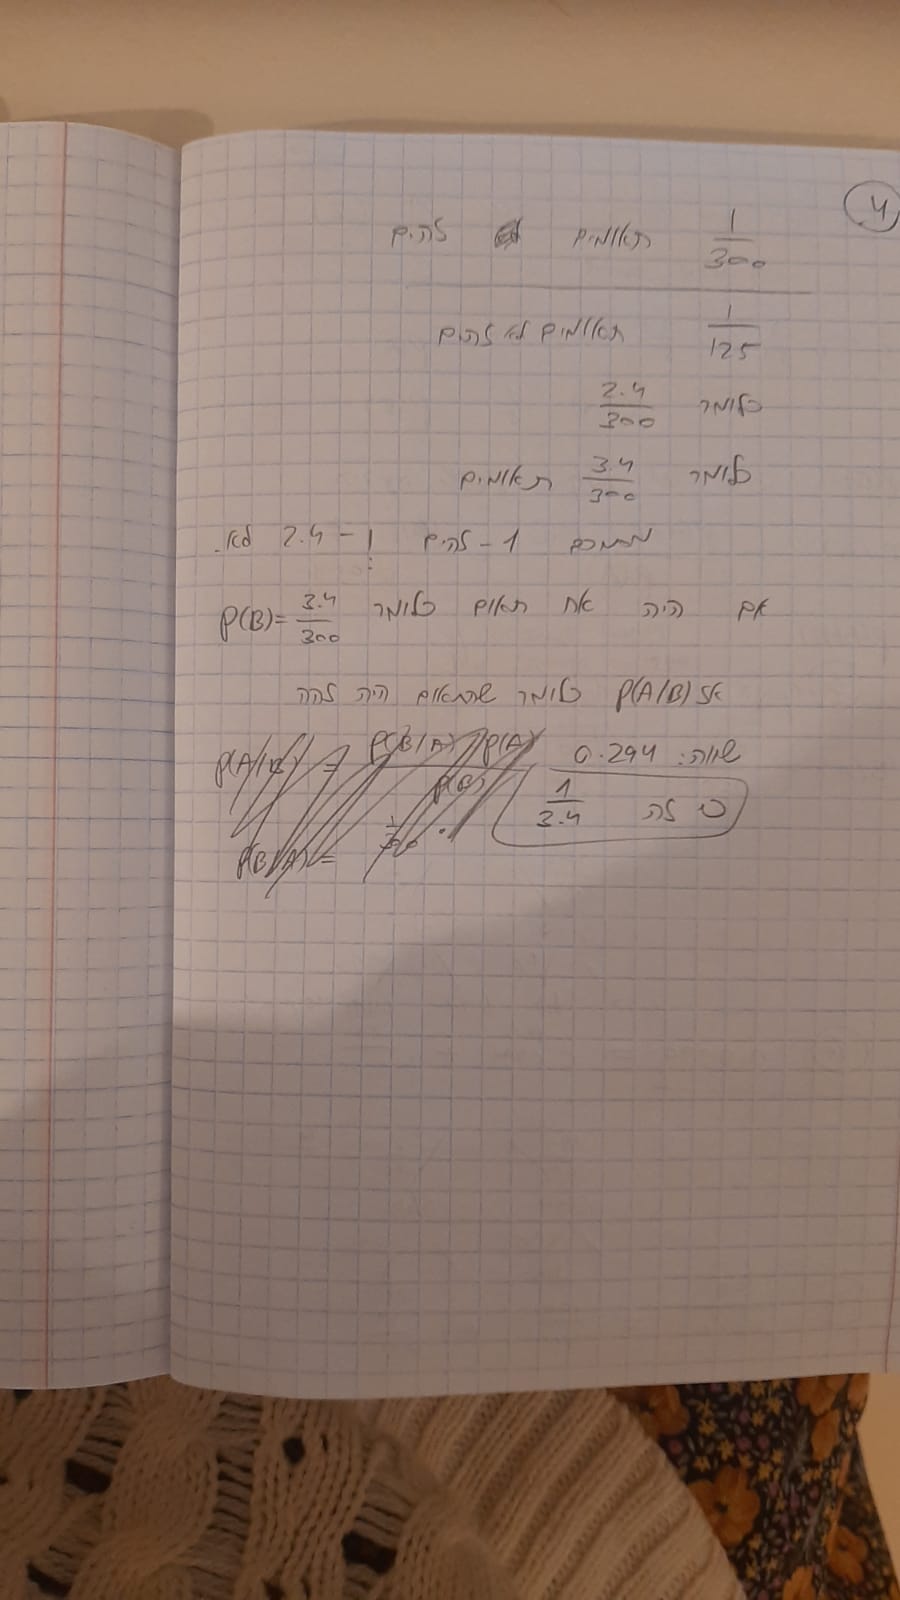 4
1/300 תאומים זהים
1/125 תאומים לא זהים
כלומר 2.4/300
כלומר 3.4/300 תאומים
מתוכם 1 - זהים ! - 2.4 לא.
אם היה אח תאום כלומר P(B)=3.4/300
אז P(A/B) כלומר שהתאום היה זהה
שווה: 0.294
כי זה 1/3.4